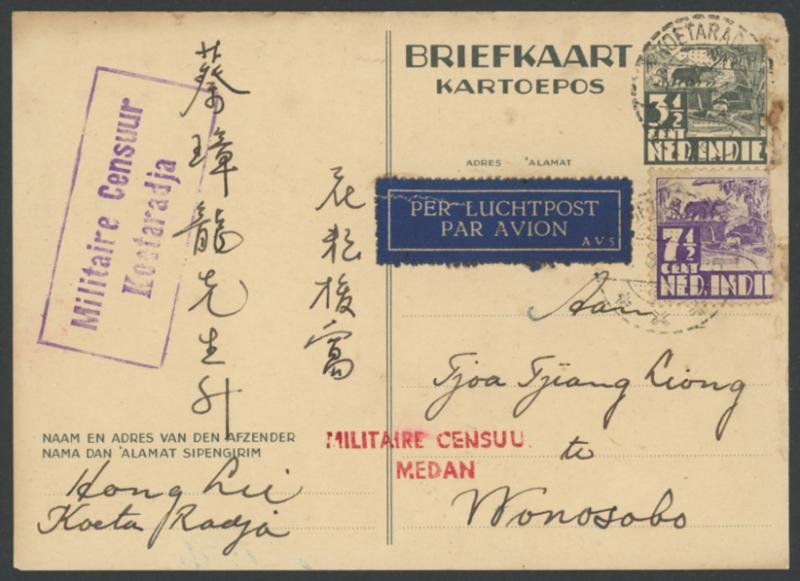 Militaire Censuur
Koetaradja
蔡璋龍先生升
NAAM EN ADRES VAN DEN AFZENDER
NAMA DAN 'ALAMAT SIPENGIRIM
Hong Lii
Koeta Radja
BRIEFKAART
KARTOEPOS
ADRES 'ALAMAT
KOETARAD
3½
CENT
NED. INDIE
PER LUCHTPOST
PAR AVION
AV5
7½
CENT
NED. INDIE
Aan
Tjoa Tjiang Liong
te
Wonosobo
MILITAIRE CENSUU
MEDAN